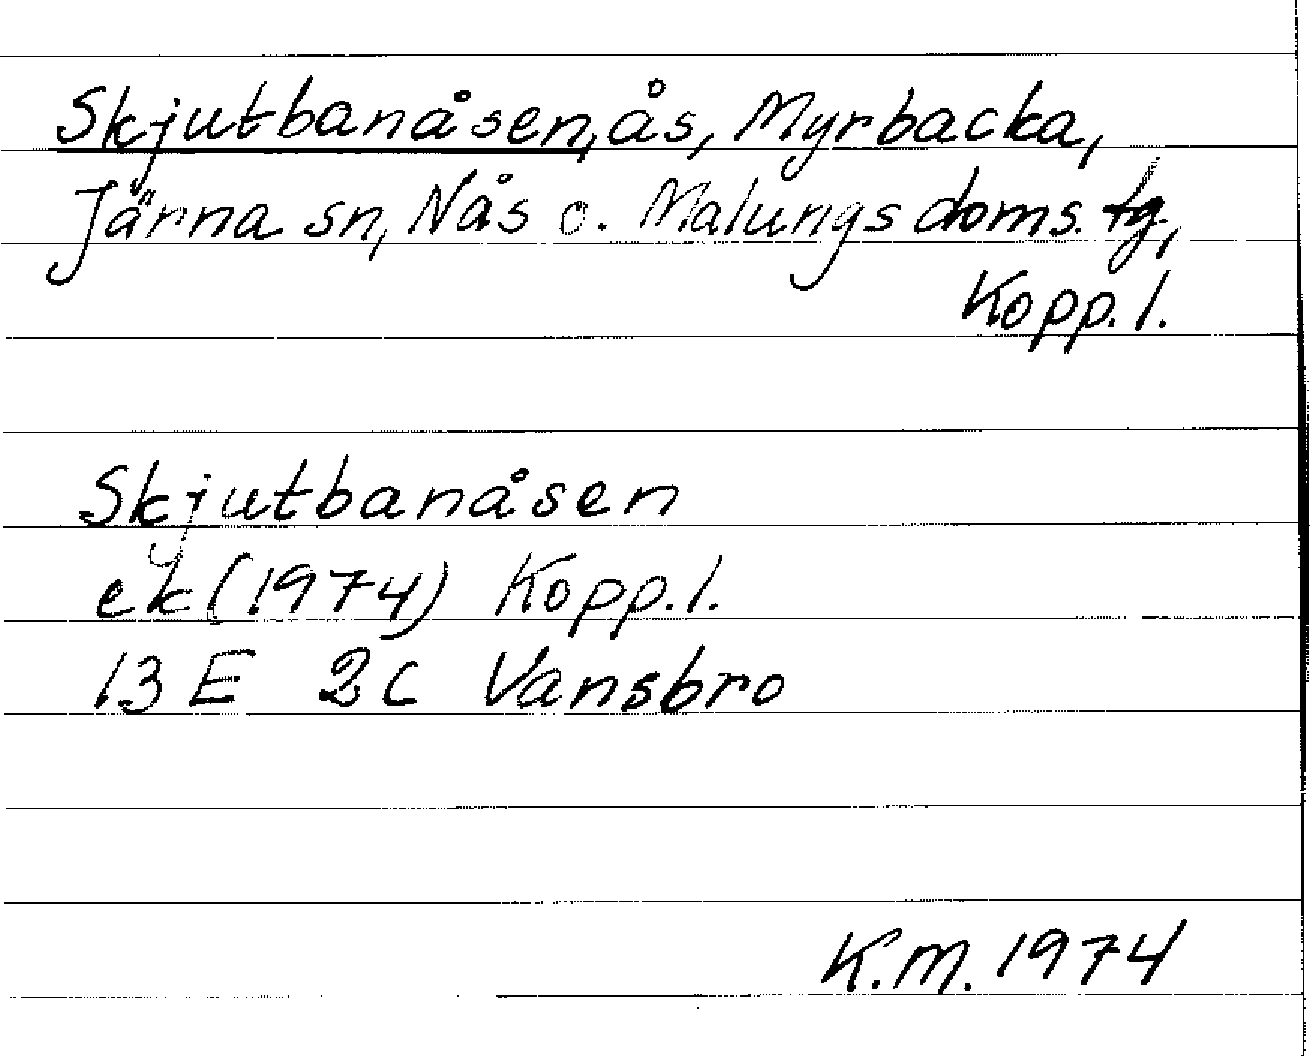 Skjutbanåsen, ås, Myrbacka,
Järna sn, Nås o. Malungs doms. tg,
Kopp. l.
Skjutbanåsen
ek (1974) Kopp. l.
13 E 2c Vansbro
K.M. 1974